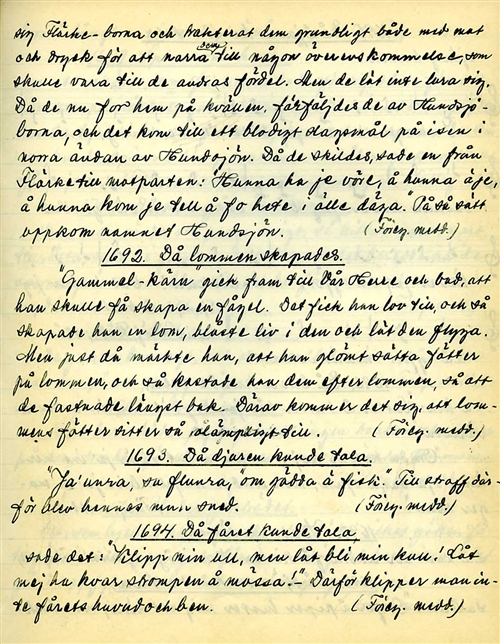 sig Flärke-borna och trakterat dem grundligt både med mat
och dryck för att narra dem till någon överenskommelse, som
skulle vara till de andras fördel. Men de lät inte lura sig.
Då de nu for hem på kvällen, förföljdes de av Hundsjö-
borna, och det kom till ett blodigt slagsmål på isen i
norra ändan av Hundsjön. Då de skildes, sade en från
Flärke till motparten: "Hunna ha je vöre, å hunna ä je,
å hunna kom je tell å fo hete i alle däga. På så sätt
uppkom namnet Hundsjön. (Föreg. medd.)
1692. Då lommen skapades.
"Gammel-kärn" gick fram till Vår Herre och bad, att
han skulle få skapa en fågel. Det fick han lov till, och så
skapade han en lom, blåste liv i den och lät den flyga.
Men just då märkte han, att han glömt sätta fötter
på lommen, och så kastade han dem efter lommen, så att
de fastnade längst bak. Därav kommer det sig, att lom-
mens fötter sitter så olämpligt till. (Föreg. medd.)
1693. Då djuren kunde tala.
"Ja' unra, sa flunra," om gädda ä fisk." Till straff där-
för blev hennes mun sned. (Föreg. medd.)
1694. Då fåret kunde tala
sade det: "Klipp min ull, men låt bli min kull! Låt
mej ha kvar strompen å mössa!" - Därför klipper man in-
te fårets huvud och ben. (Föreg. medd.)